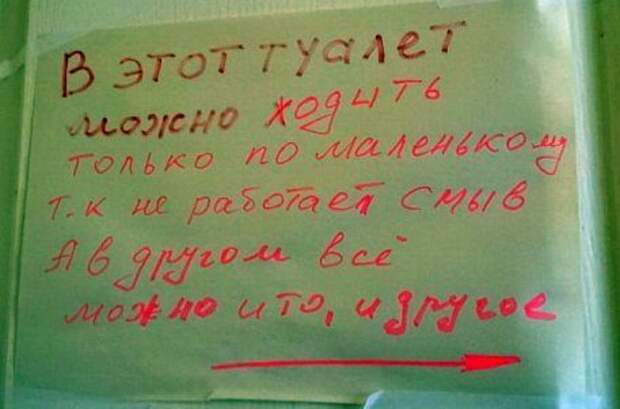 В этот туалет
можно ходить
только по маленькому
т.к не работает смыв
А в другом всё
можно и то, и другое